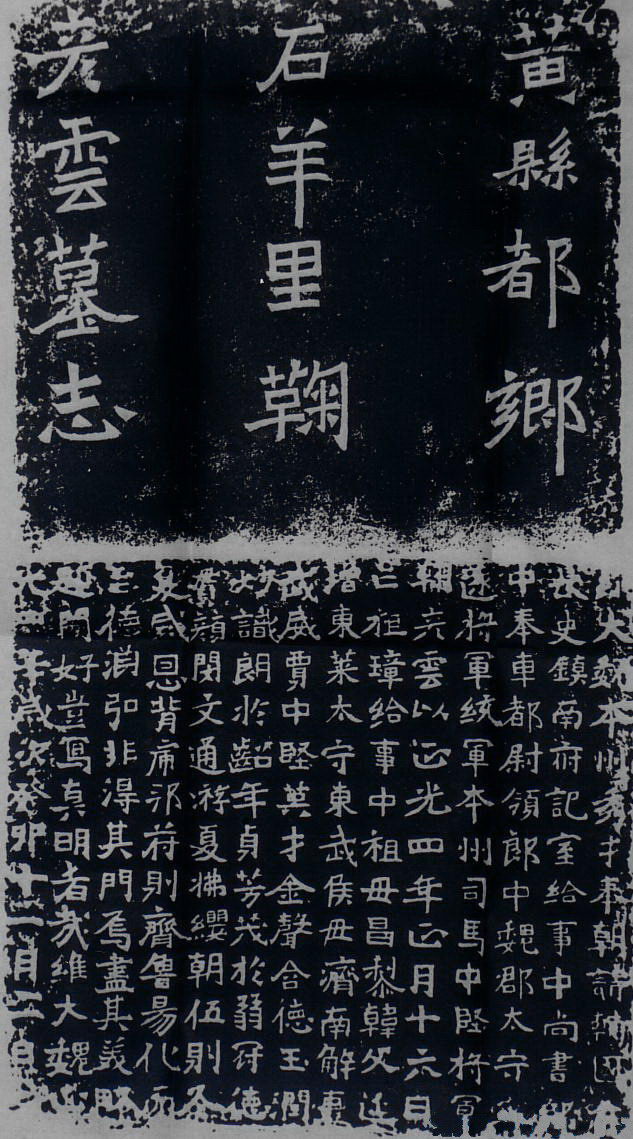 黄縣都鄉
石羊里鞠
彦雲墓志
大魏本州秀才奉朝請輔國
長史鎮南府記室給事中尚書郎
中奉車都尉領郎中魏郡太守
遠將軍統軍本州司馬中堅將軍
彦雲以正光四年正月十六日
亡祖璋給事中祖母昌黎韓父延
增東萊太守東武侯母濟南解妻
武威賈中堅英才金聲合德玉潤
妙識朗於齠年貞芳茂於弱冠德
實顏閔文通游夏拂纓朝伍則令
恩背席邦苻則齊魯易化
德淵弘非得其門焉盡其美略
好豈寫真明者哉維大魏正
光四年歲次癸卯十一月二日